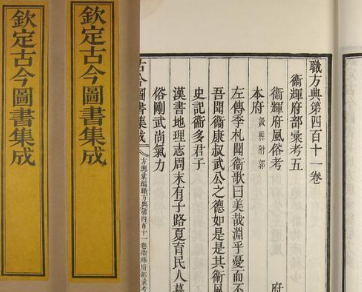 欽定古今圖書集成
欽定古今圖書集成
職方典第四百十一卷
衞輝府部彙考五
衞輝府風俗考
府
本府
左傳季札聞衞歌曰美哉淵乎憂而不
吾聞衞康叔武公之德如是是其衞風
史記衞多君子
漢書地理志周末有子路夏育民人慕
俗剛武尚氣力
古今圖書集成